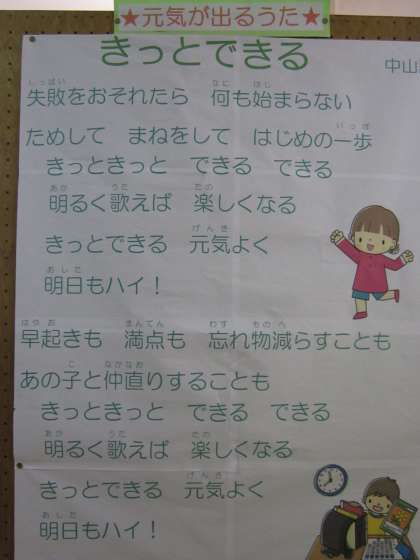 ★元気が出るうた★
きっとできる
中山
失敗をおそれたら 何も始まらない
ためして まねをして はじめの一歩
きっときっと できる できる
明るく歌えば 楽しくなる
きっとできる 元気よく
明日もハイ！
早起きも 満点も 忘れ物減らすことも
あの子と仲直りすることも
きっときっと できる できる
明るく歌えば 楽しくなる
きっとできる 元気よく
明日もハイ！